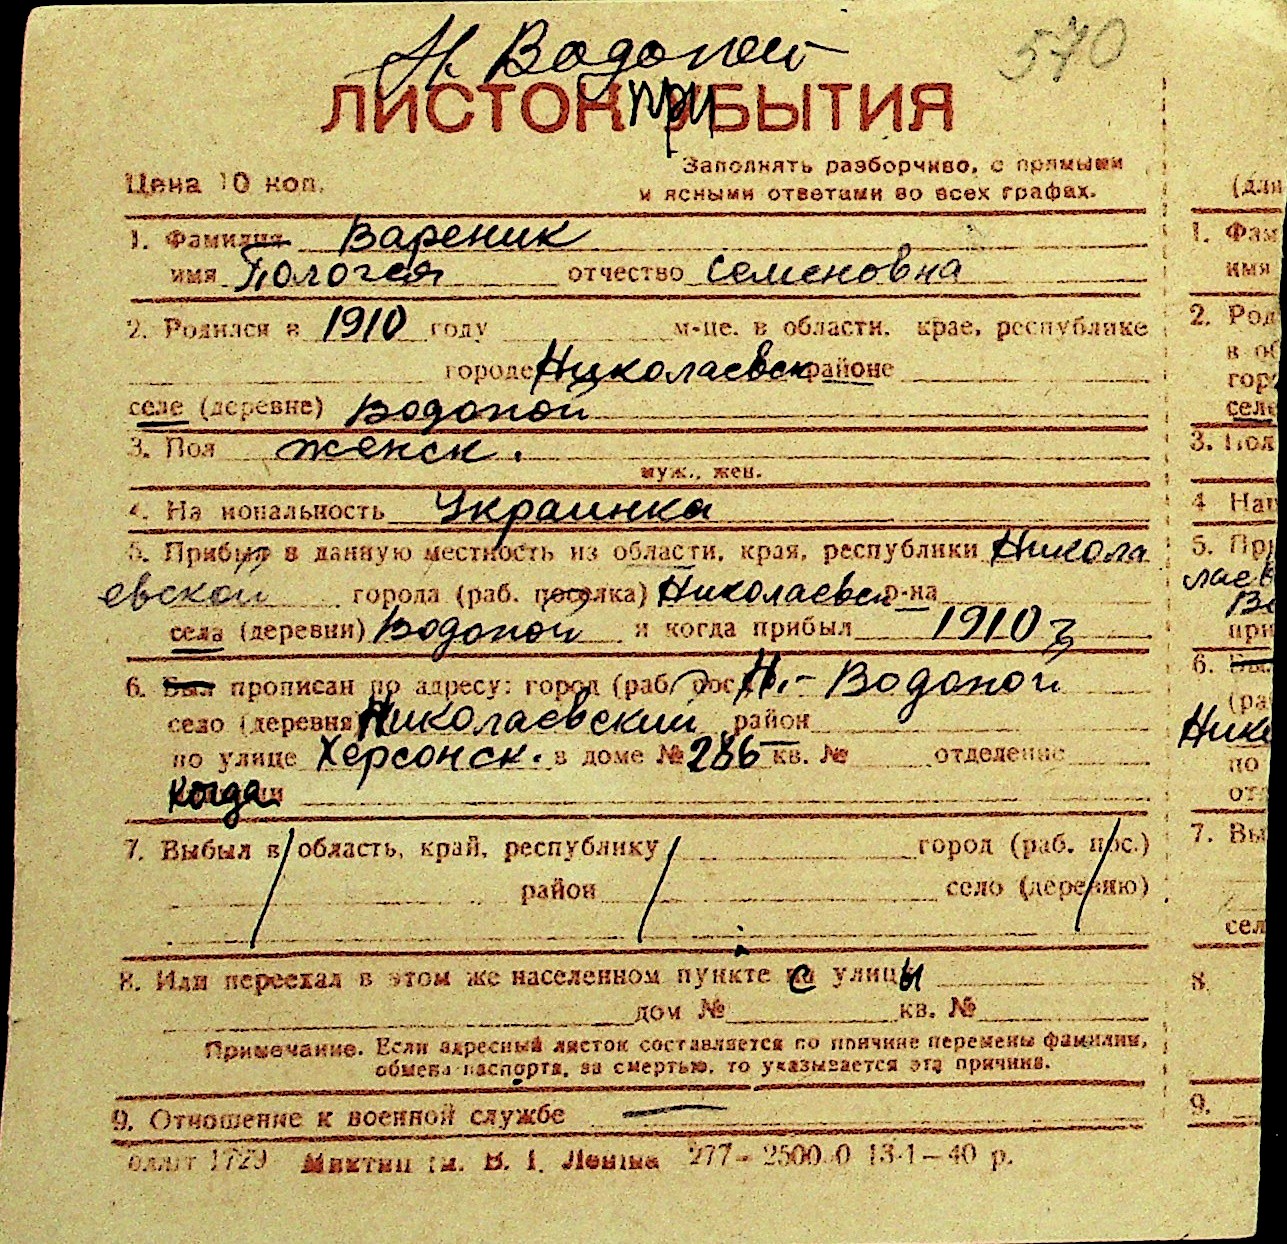 Н. Водопой
570
ЛИСТОК ПРИБЫТИЯ
Заполнять разборчиво, с прямыми
Цена 10 коп.
и ясными ответами во всех графах.
1. Фамилия Вареник
имя Пологея отчество Семеновна
2. Родился в 1910 году м-це. в области, крае, республике
городе Николаевск районе
селе (деревне) Водопой
3. Пол женск.
муж., жен.
4. На иональность Украинка
5. Прибыл в данную местность из области, края, республики Никола
евской города (раб. поселка) Николаевск р-на
села (деревни) Водопой и когда прибыл 1910 г
6. Был прописан по адресу: город (раб. пос.) Н.-Водопой
село (деревня) Николаевский район
по улице Херсонск. в доме № 286 кв. № отделение
когда
7. Выбыл в область, край, республику город (раб. пос.)
район село (деревню)
8. Или переехал в этом же населенном пункте с улицы
дом № кв. №
Примечание. Если адресный листок составляется по причине перемены фамилии,
обмена паспорта, за смертью, то указывается эта причина.
9. Отношение к военной службе —
1729 им. В. І. Леніна 277– 2500 0 13-1–40 р.
(дли
1. Фам
имя
2. Род
в об
гор
село
3. Пол
4 Нац
5. При
лаев
Во
при
6. Был
(ра
Нико
по
от
7. Вы
сел
8.
9.